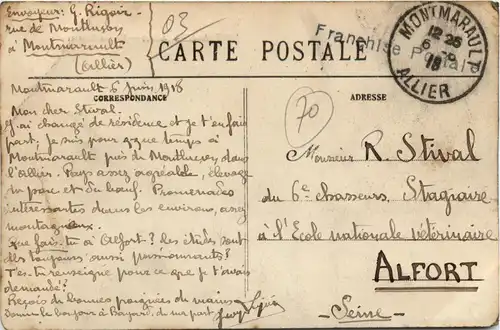 Envoyeur: G. Rigoir
rue de Montluçon
à Montmarault
(Allier)
03
CARTE POSTALE
Franchise Postale
MONTMARAULT
12 25
6 -6
18
ALLIER
CORRESPONDANCE
ADRESSE
70
Montmarault 6 juin 1918
Mon cher Stival.
J'ai changé de résidence et je t'en fais
part. Je suis pour quelque temps à
Montmarault près de Montluçon dans
l'Allier. Pays assez agréable, élevage
du porc et du bœuf. Promenades
intéressantes dans les environs, assez
montagneux.
Que fais-tu à Alfort? les études sont
elles toujours aussi passionnantes?
T'es-tu renseigné pour ce que je t'avais
demandé?
Reçois de bonnes poignées de mains
Donne le bonjour à de ma part
Monsieur R. Stival
du 6e chasseurs. Stagiaire
à l'École nationale vétérinaire
ALFORT
-Seine-